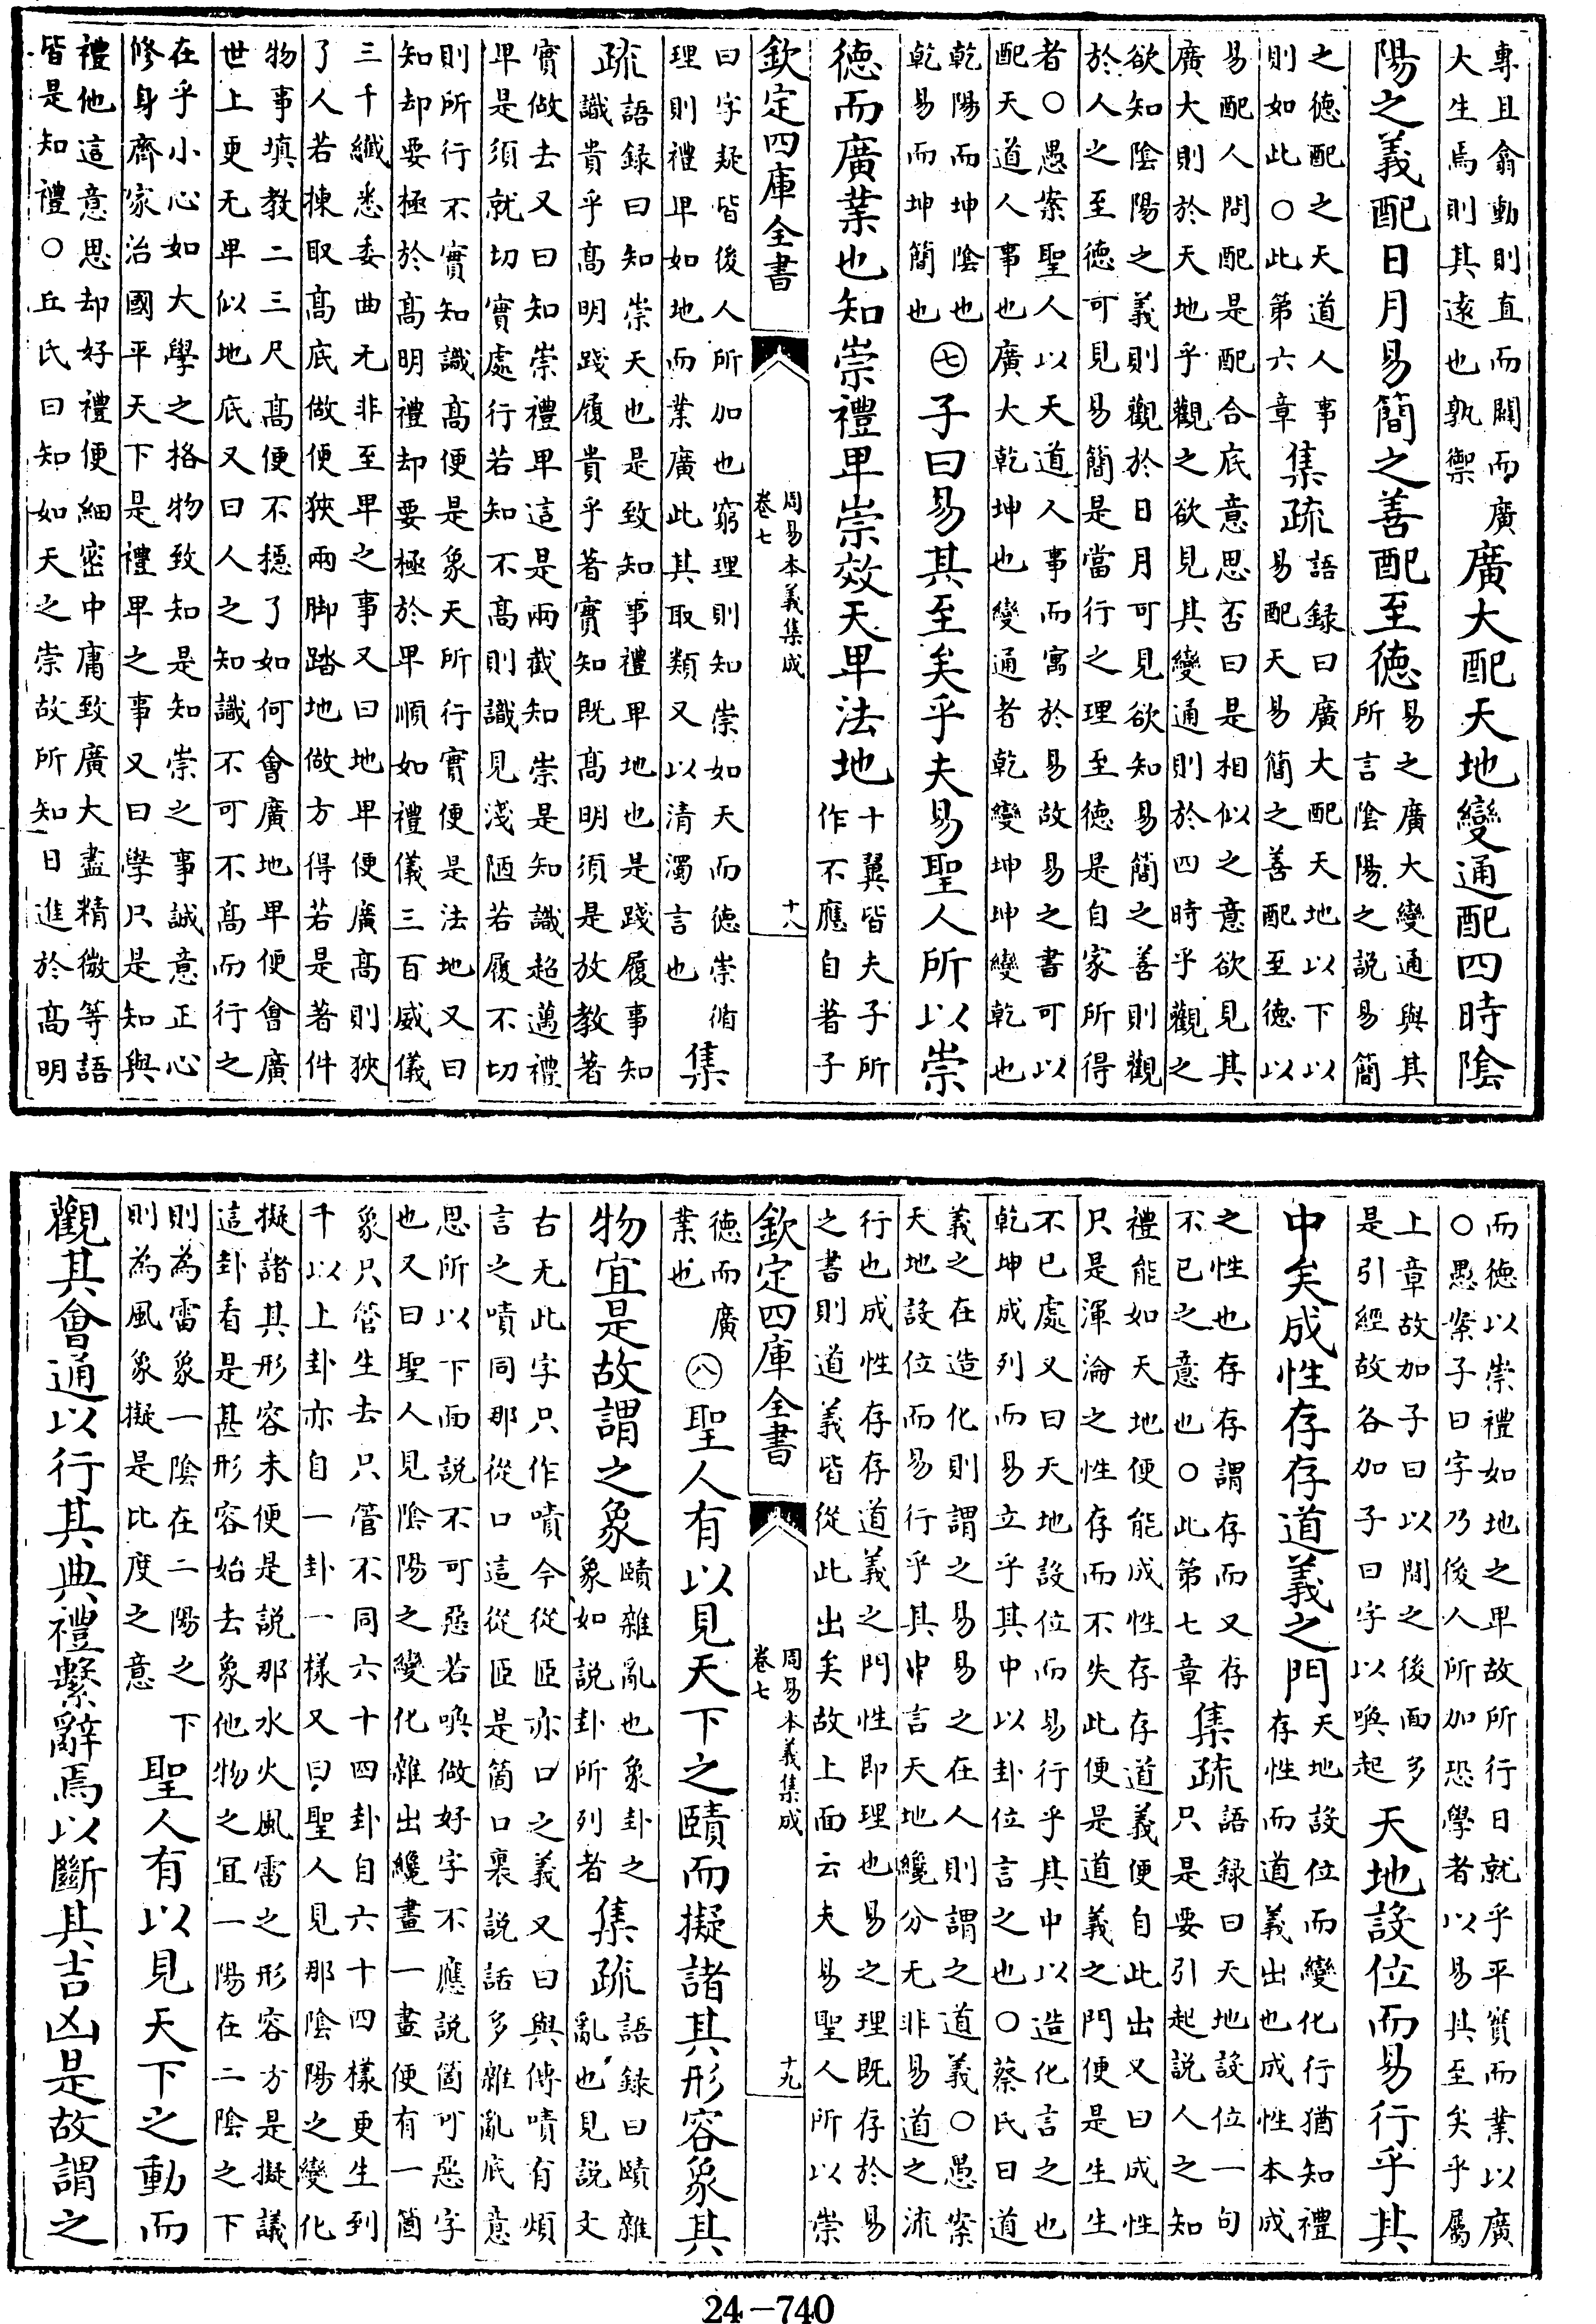 專且翕動則直而闢而廣
大生焉則其逺也孰禦
廣大配天地變通配四時隂
陽之義配日月易簡之善配至徳
易之廣大變通與其
所言隂陽之説易簡
之徳配之天道人事
則如此○此第六章
集疏
語録曰廣大配天地以下以
易配天易簡之善配至徳以
易配人問配是配合底意思否曰是相似之意欲見其
廣大則於天地乎觀之欲見其變通則於四時乎觀之
欲知隂陽之義則觀於日月可見欲知易簡之善則觀
於人之至徳可見易簡是當行之理至徳是自家所得
者○愚案聖人以天道人事而寓於易故易之書可以
配天道人事也廣大乾坤也變通者乾變坤坤變乾也
乾陽而坤隂也
乾易而坤簡也
㊆子曰易其至矣乎夫易聖人所以崇
徳而廣業也知崇禮卑崇效天卑法地
十翼皆夫子所
作不應自著子
欽定四庫全書
周易本義集成
卷七
十八
曰字疑皆後人所加也窮理則知崇如天而徳崇循
理則禮卑如地而業廣此其取類又以清濁言也
集
疏
語録曰知崇天也是致知事禮卑地也是踐履事知
識貴乎髙明踐履貴乎著實知既髙明須是放教著
實做去又曰知崇禮卑這是兩截知崇是知識超邁禮
卑是須就切實處行若知不髙則識見淺陋若履不切
則所行不實知識髙便是象天所行實便是法地又曰
知却要極於髙明禮却要極於卑順如禮儀三百威儀
三千纖悉委曲无非至卑之事又曰地卑便廣髙則狹
了人若揀取髙底做便狹兩脚踏地做方得若是著件
物事填教二三尺髙便不穩了如何會廣地卑便會廣
世上更无卑似地底又曰人之知識不可不髙而行之
在乎小心如大學之格物致知是知崇之事誠意正心
修身齊家治國平天下是禮卑之事又曰學只是知與
禮他這意思却好禮便細密中庸致廣大盡精微等語
皆是知禮○丘氏曰知如天之崇故所知日進於髙明
而徳以崇禮如地之卑故所行日就乎平實而業以廣
○愚案子曰字乃後人所加恐學者以易其至矣乎屬
上章故加子曰以間之後面多
是引經故各加子曰字以喚起
天地設位而易行乎其
中矣成性存存道義之門
天地設位而變化行猶知禮
存性而道義出也成性本成
之性也存存謂存而又存
不已之意也○此第七章
集疏
語録曰天地設位一句
只是要引起説人之知
禮能如天地便能成性存存道義便自此出又曰成性
只是渾淪之性存而不失此便是道義之門便是生生
不已處又曰天地設位而易行乎其中以造化言之也
乾坤成列而易立乎其中以卦位言之也○蔡氏曰道
義之在造化則謂之易易之在人則謂之道義○愚案
天地設位而易行乎其中言天地纔分无非易道之流
行也成性存存道義之門性即理也易之理既存於易
之書則道義皆從此出矣故上面云夫易聖人所以崇
欽定四庫全書
周易本義集成
卷七
十九
徳而廣
業也
㊇聖人有以見天下之賾而擬諸其形容象其
物宜是故謂之象
賾雜亂也象卦之
象如説卦所列者
集疏
語録曰賾雜
亂也見説文
古无此字只作嘖今從𦣞亦口之義又曰與傳嘖有煩
言之嘖同那從口這從𦣞是箇口裏説話多雜亂底意
思所以下面説不可惡若喚做好字不應説箇可惡字
也又曰聖人見隂陽之變化雜出纔畫一畫便有一箇
象只管生去只管不同六十四卦自六十四樣更生到
千以上卦亦自一卦一樣又曰聖人見那隂陽之變化
擬諸其形容未便是説那水火風雷之形容方是擬議
這卦看是甚形容始去象他物之宜一陽在二隂之下
則為雷象一隂在二陽之下
則為風象擬是比度之意
聖人有以見天下之動而
觀其會通以行其典禮繫辭焉以斷其吉凶是故謂之
24-740